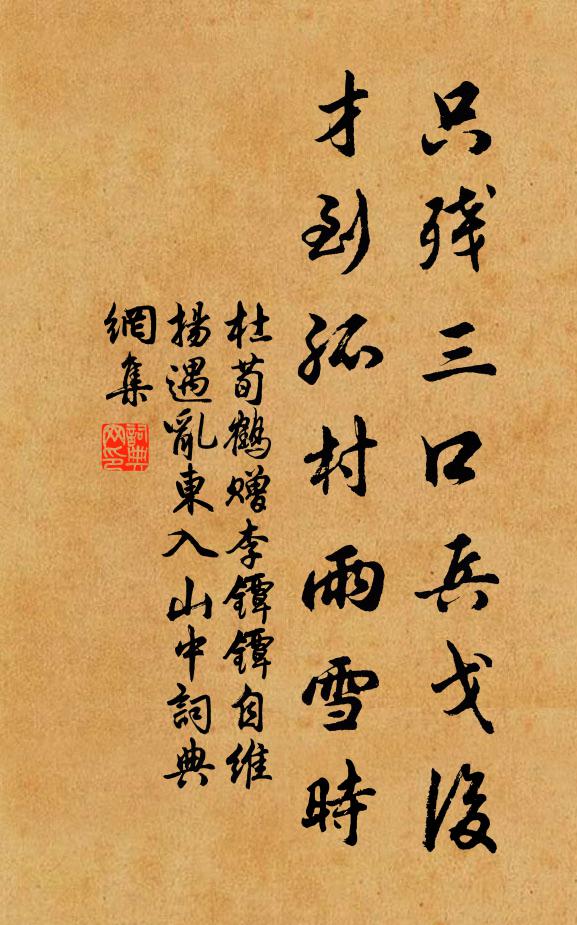 只残三口兵戈後
才到孤村雨雪時
杜荀鶴赠李鐔鐔自維
揚遇亂東入山中詞典
網集
詞典網印